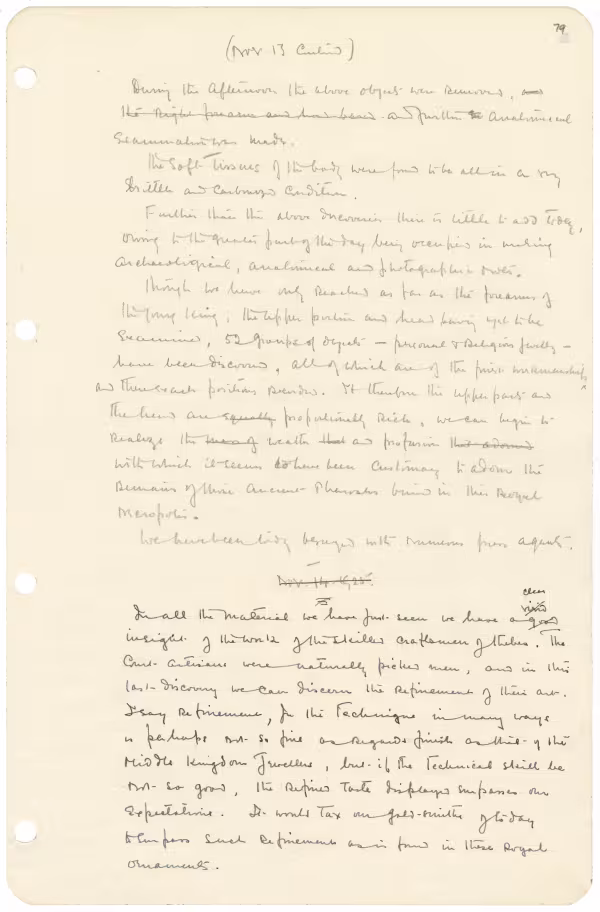 79
(Nov 13 Contind)
During the afternoon the above objects were removed, and
the right forearm and hand bared and further anatomical
Examination was made.
The soft tissues of the body were found to be all in a very
brittle and carbonized condition.
Further than the above discoveries there is little to add today,
owing to the greater part of the day being occupied in making
archaeological, anatomical and photographic notes.
Though we have only reached as far as the forearms of
the young King, the upper portion and head having yet to be
Examined, 52 groups of objects – personal & Religious jewelry –
have been discovered, all of which are of the finest workmanship,
and their exact positions recorded. If therefore the upper parts and
the head are equally proportionally rich, we can begin to
realize the wealth that and profusion that adorned
with which it seems to have been customary to adorn the
Remains of those ancient Pharaohs buried in this Royal
Necropolis.
We have been badly besieged with numerous press agents.
Nov. 14. 1925.
clear
vivid
In all the material we have just seen we have a good
insight of the work of the skilled craftsmen of Thebes. The
Court artisans were naturally picked men, and in this
last discovery we can discern the Refinement of their art.
I say Refinement, for the Technique in many ways
is perhaps not so fine as regards finish as that of the
Middle Kingdom Jewellers, but if the Technical skill be
not so good, the refined taste displayed surpasses our
Expectations. It would tax our gold-smiths of today
to surpass such refinement as is found in these Royal
ornaments.